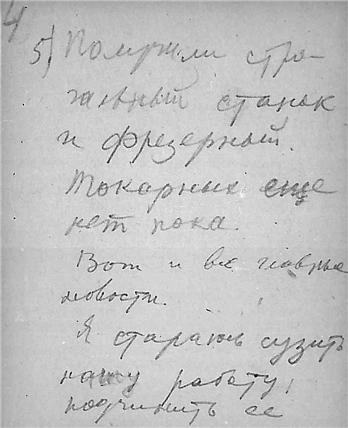 4
5) Получили стро-
гальный станок
и фрезерный.
Токарных еще
нет пока.
Вот и все главные
новости.
Я стараюсь сузить
нашу работу,
подчинить ее